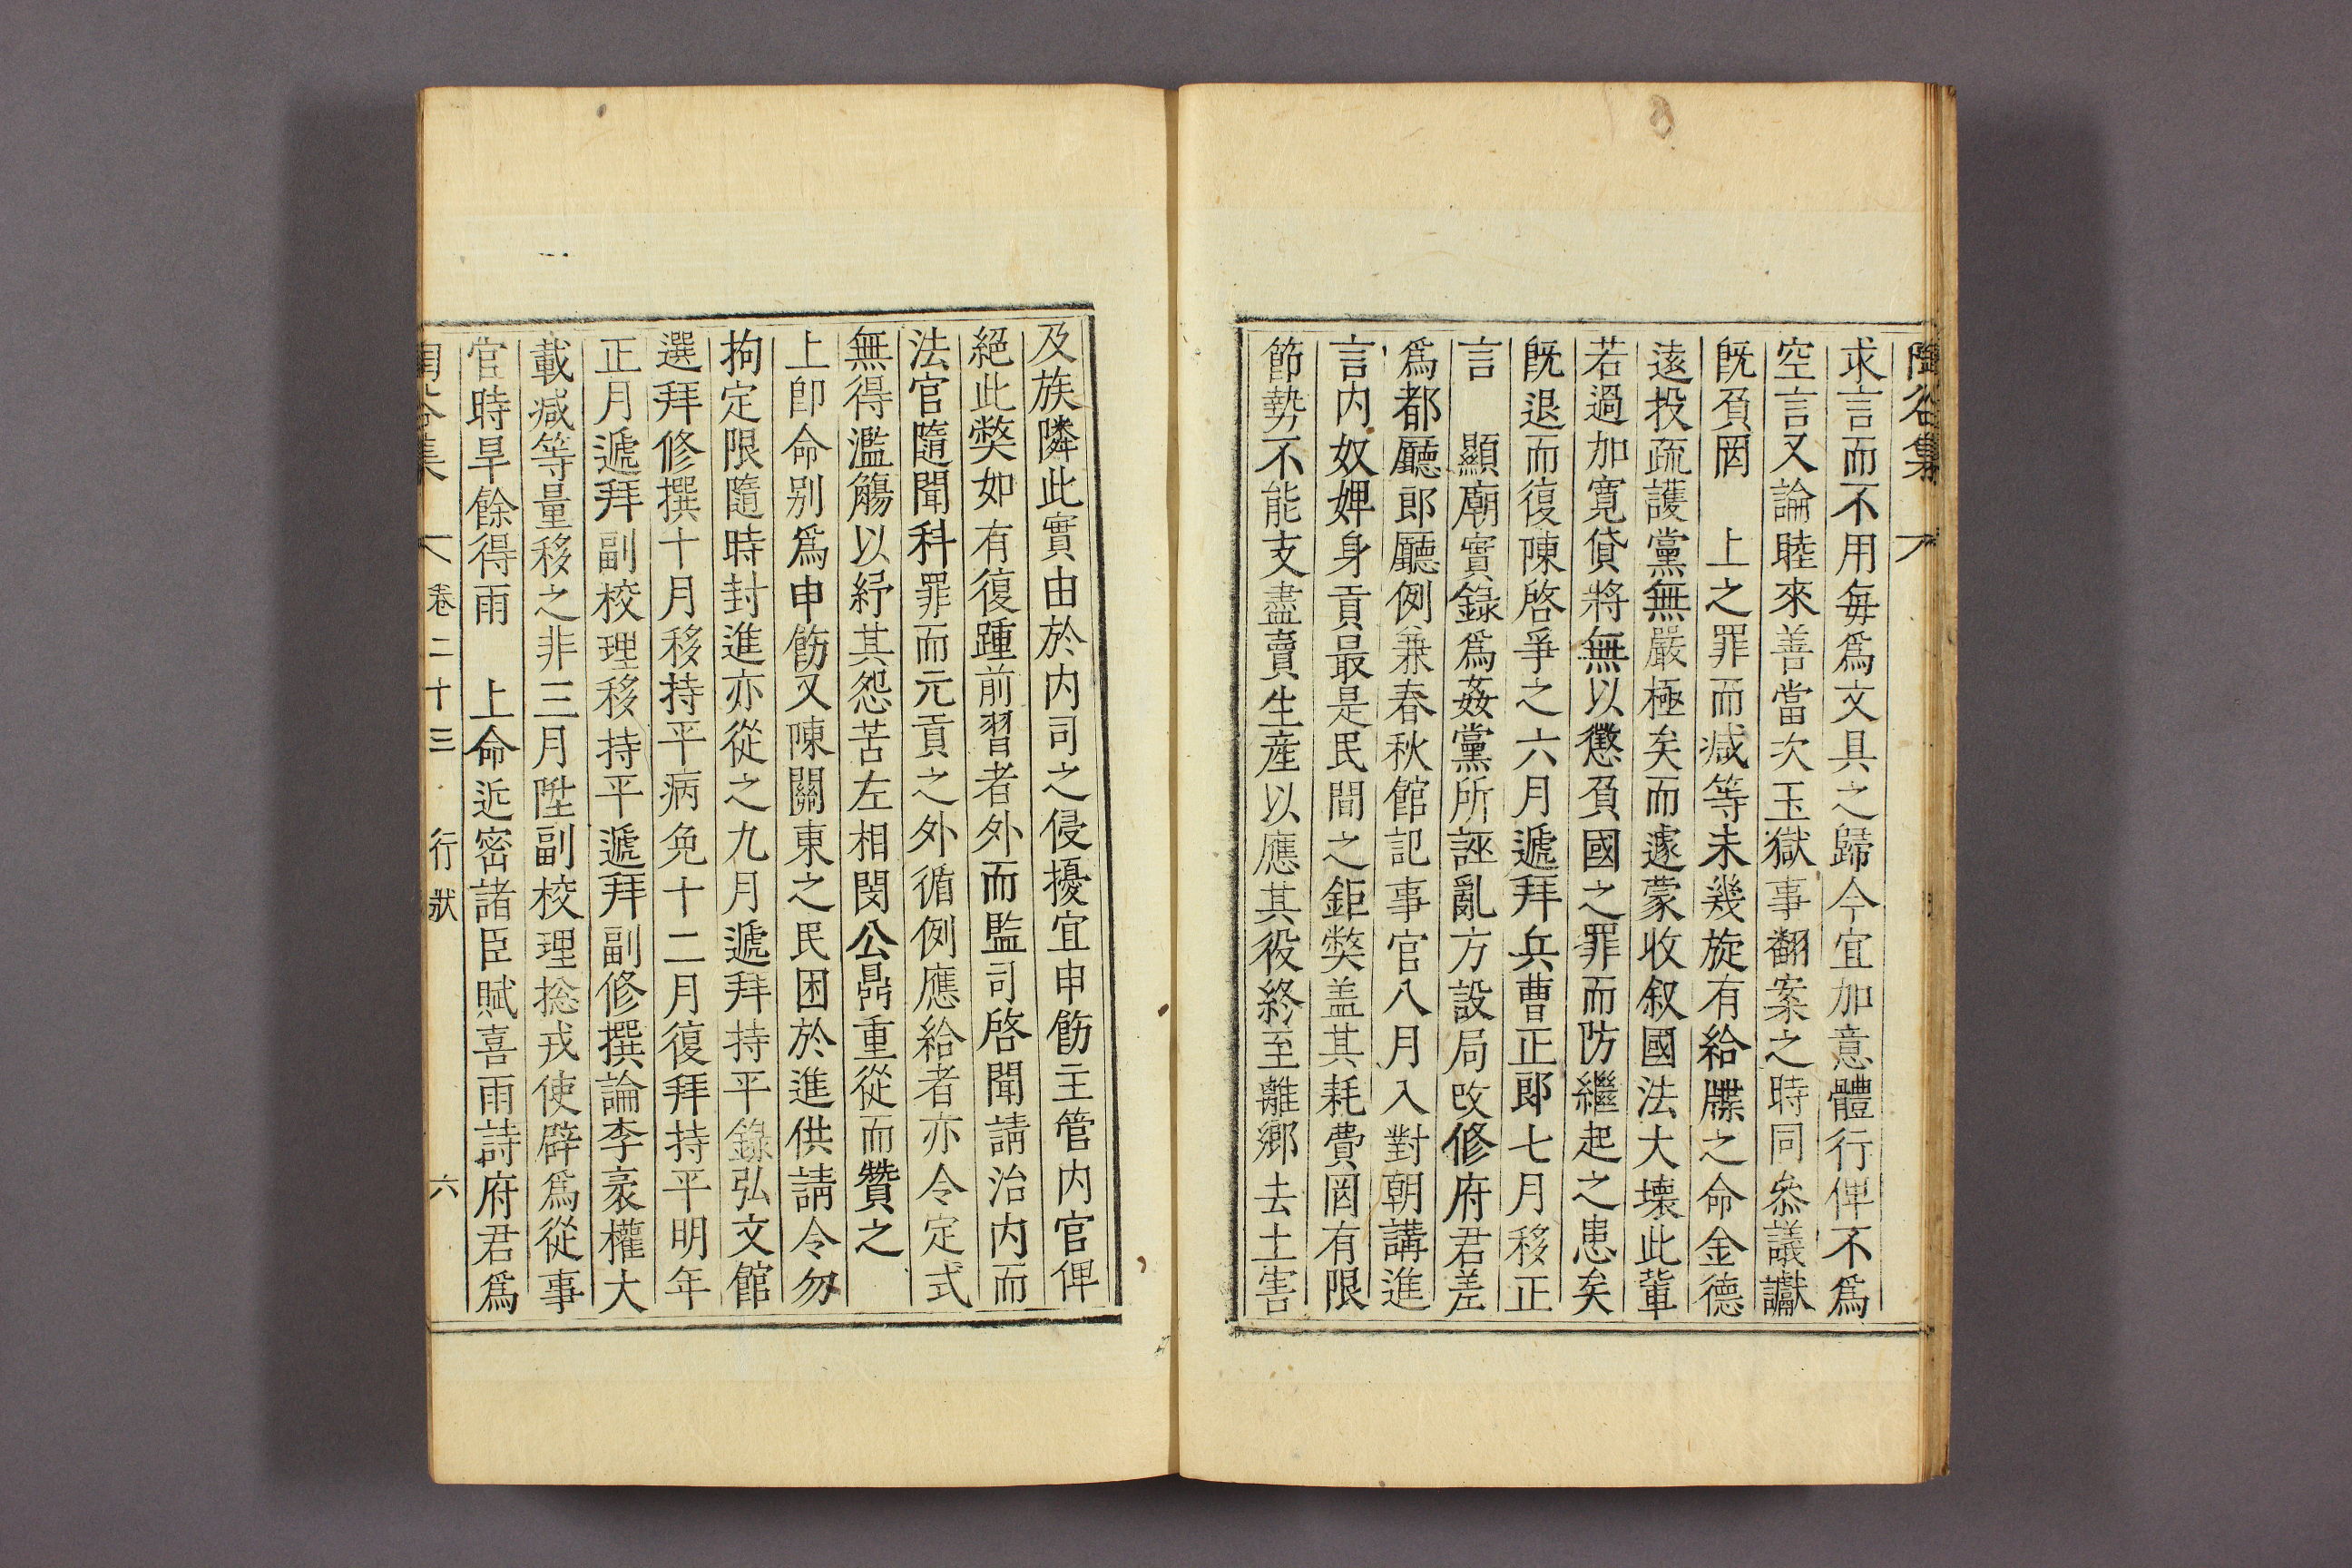 陶谷集
求言而不用每爲文具之歸今宜加意體行俾不爲
空言又論睦來善當次玉獄事翻案之時同叅議讞
旣負罔　上之罪而减等未幾旋有給牒之命金德
遠投疏護黨無嚴極矣而遽蒙收叙國法大壞此輩
若過加寬貸將無以懲負國之罪而防繼起之患矣
旣退而復陳啓爭之六月遞拜兵曹正郞七月移正
言　顯廟實錄爲姦黨所誣亂方設局改修府君差
爲都廳郞廳例兼春秋館記事官八月入對朝講進
言內奴婢身貢最是民間之鉅獘盖其耗費罔有限
節勢不能支盡賣生産以應其役終至離鄕去土害
及族隣此實由於內司之侵擾宜申飭主管內官俾
絕此獘如有復踵前習者外而監司啓聞請治內而
法官隨聞科罪而元貢之外循例應給者亦令定式
無得濫觴以紓其怨苦左相閔公鼎重從而贊之
上卽命别爲申飭又陳關東之民困於進供請令勿
拘定限隨時封進亦從之九月遞拜持平錄弘文館
選拜修撰十月移持平病免十二月復拜持平明年
正月遞拜副校理移持平遞拜副修撰論李袤權大
載减等量移之非三月陞副校理摠戎使辟爲從事
官時旱餘得雨　上命近密諸臣賦喜雨詩府君爲
陶谷集　卷二十三　行狀　六